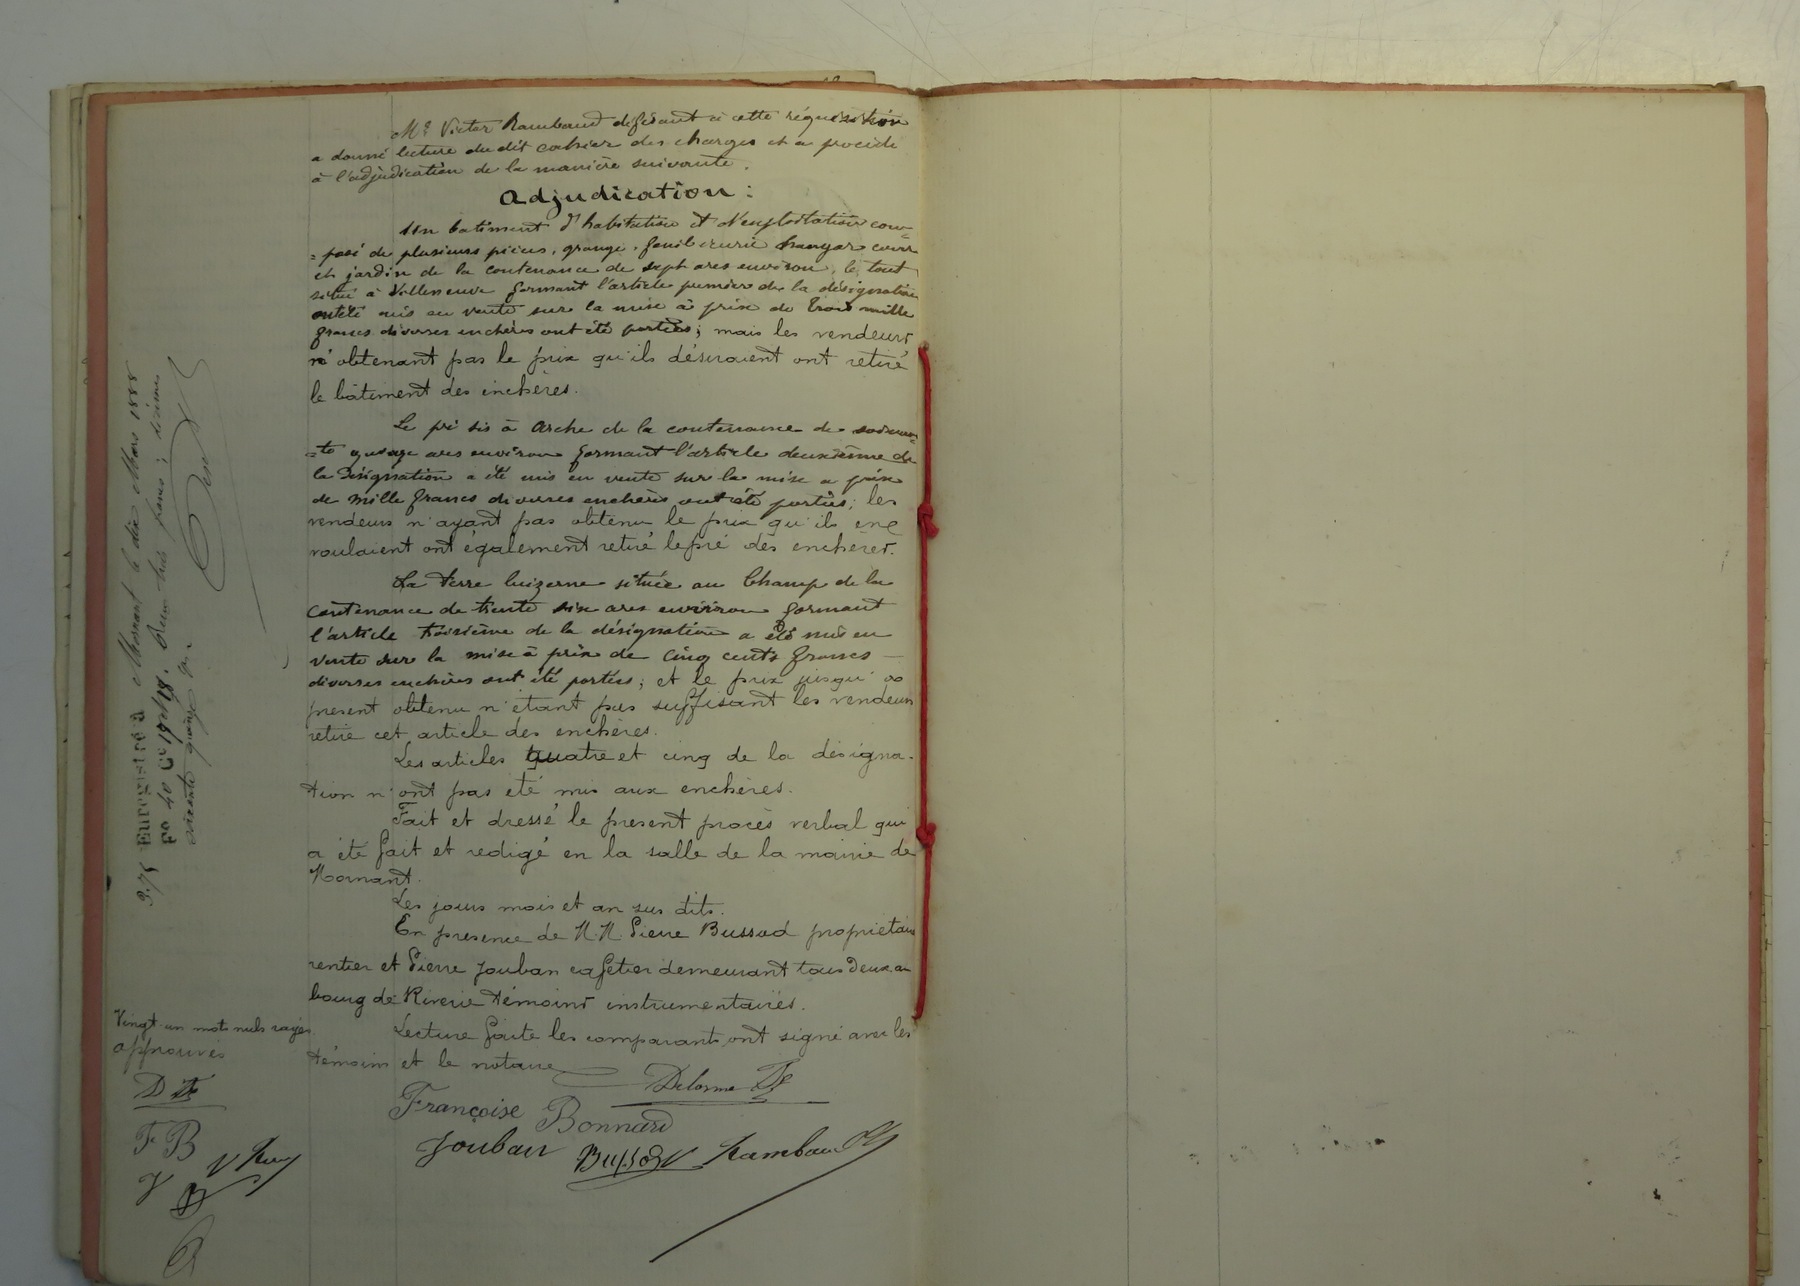 Mᵉ Victor Rambaud déférant à cette réquisition
a donné lecture du dit cahier des charges et a procédé
à l'adjudication de la manière suivante.
Adjudication :
Un batiment d'habitation et d'exploitation com-
= posé de plusieurs pièces, grange, fenil écurie hangar cour
et jardin de la contenance de sept ares environ, le tout
situé à Villeneuve formant l'article premier de la désignation
ont été mis en vente sur la mise à prix de trois mille
francs diverses enchères ont été portées; mais les vendeurs
n'obtenant pas le prix qu'ils désiraient ont retiré
le bâtiment des enchères.
Le pré sis à Arche de la contenance de soixan-
=te quinze ares environ formant l'article deuxième de
la Désignation a été mis en vente sur la mise a prix
de mille francs diverses enchères ont été portées; les
vendeurs n'ayant pas obtenu le prix qu'ils en
voulaient ont également retiré le pré des enchères.
La terre luizerne située au Champ de la
contenance de trente six ares environ formant
l'article troisième de la désignation a été mis en
vente sur la mise à prix de cinq cents francs —
diverses enchères ont été portées; et le prix jusqu'à
present obtenu n'étant pas suffisant les vendeurs
retire cet article des enchères.
Les articles quatre et cinq de la désigna-
tion n'ont pas été mis aux enchères.
Fait et dressé le present procès verbal qui
a été fait et redigé en la salle de la mairie de
Mornant.
Les jours mois et an sus dits.
En presence de M.M. Pierre Bussod propriétaire
rentier et Pierre Jouban cafetier demeurant tous deux au
bourg de Riverie témoins instrumentaires.
Lecture faite les comparants ont signé avec les
témoins et le notaire
Delorme
Françoise Bonnard
Jouban Bussod V Rambaud
Enregistré à Mornant le dix Mars 1888
Fº 40 Cᵉ 17 et 18. Reçu trois francs; décimes
soixante quinze c.
3.75
Vingt-un mots nuls rayés
approuvés
F B
J
B